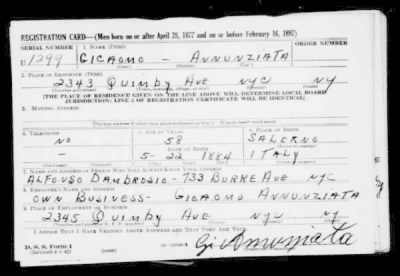 REGISTRATION CARD—(Men born on or after April 28, 1877 and on or before February 16, 1897)
SERIAL NUMBER 1. NAME (Print) ORDER NUMBER
U 1299 GICAOMO — ANNUNZIATA
2. PLACE OF RESIDENCE (Print)
2343 QUIMBY AVE NYC NY
[THE PLACE OF RESIDENCE GIVEN ON THE LINE ABOVE WILL DETERMINE LOCAL BOARD
JURISDICTION; LINE 2 OF REGISTRATION CERTIFICATE WILL BE IDENTICAL]
3. MAILING ADDRESS
4. TELEPHONE 5. AGE IN YEARS 6. PLACE OF BIRTH
NO 58 SALERNO
DATE OF BIRTH
— 5- 22 1884 ITALY
7. NAME AND ADDRESS OF PERSON WHO WILL ALWAYS KNOW YOUR ADDRESS
ALFONSO DAMBROSIO- 733 BURKE AVE NYC
8. EMPLOYER'S NAME AND ADDRESS
OWN BUSINESS- GICAOMO ANNUNZIATA
9. PLACE OF EMPLOYMENT OR BUSINESS
2345 QUIMBY AVE NYC NY
I AFFIRM THAT I HAVE VERIFIED ABOVE ANSWERS AND THAT THEY ARE TRUE.
D. S. S. Form 1 Gi Annunziata
(Revised 4-1-42)